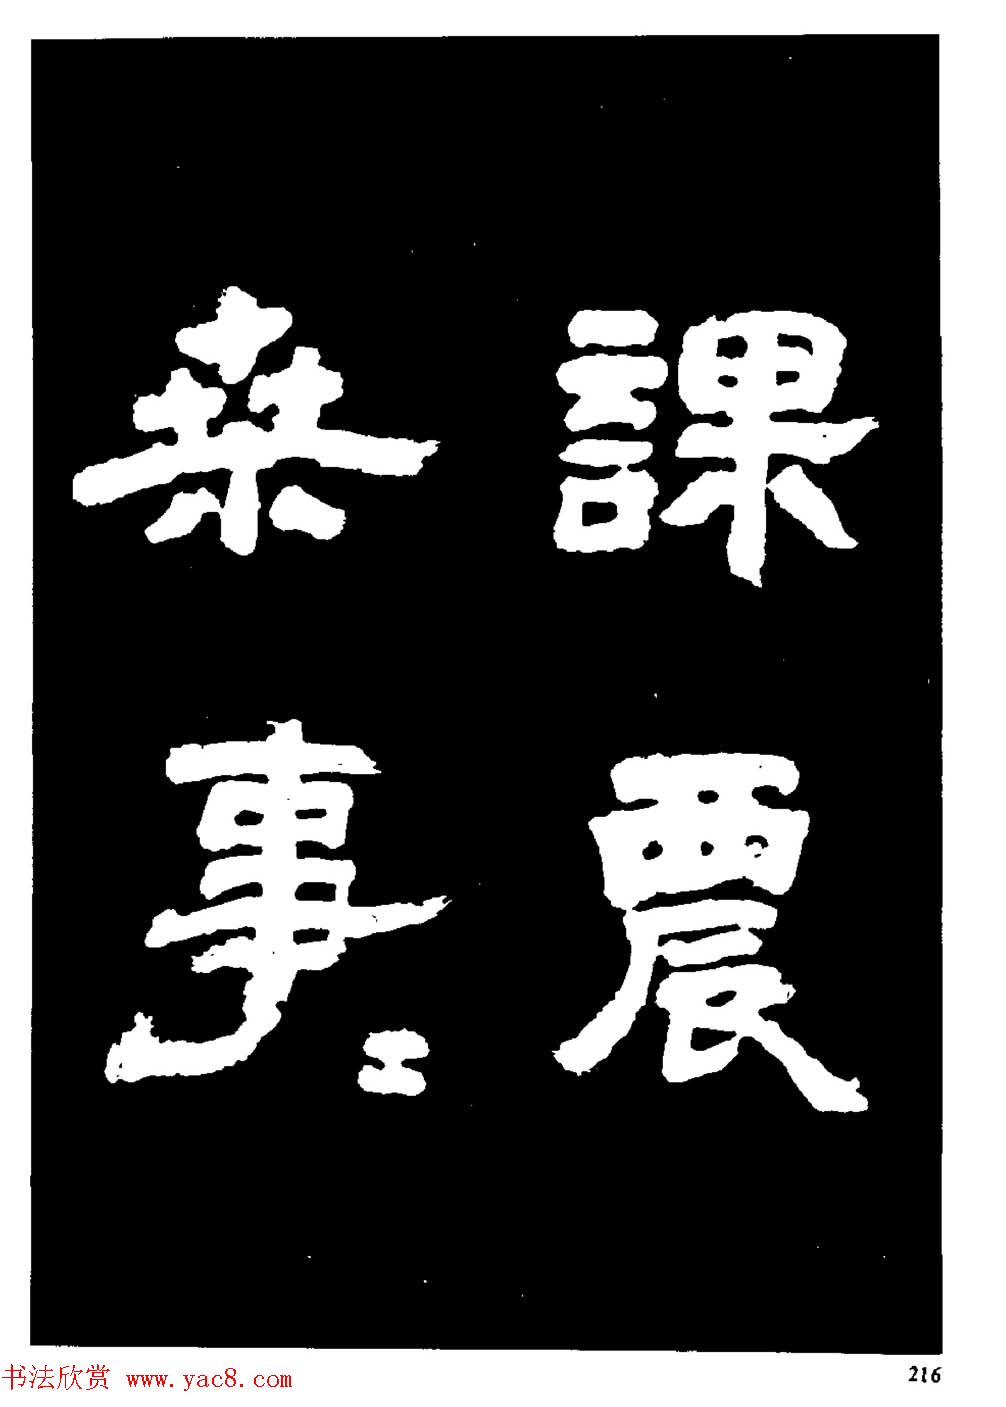 課農
桑事〻
216
书法欣赏 www.yac8.com